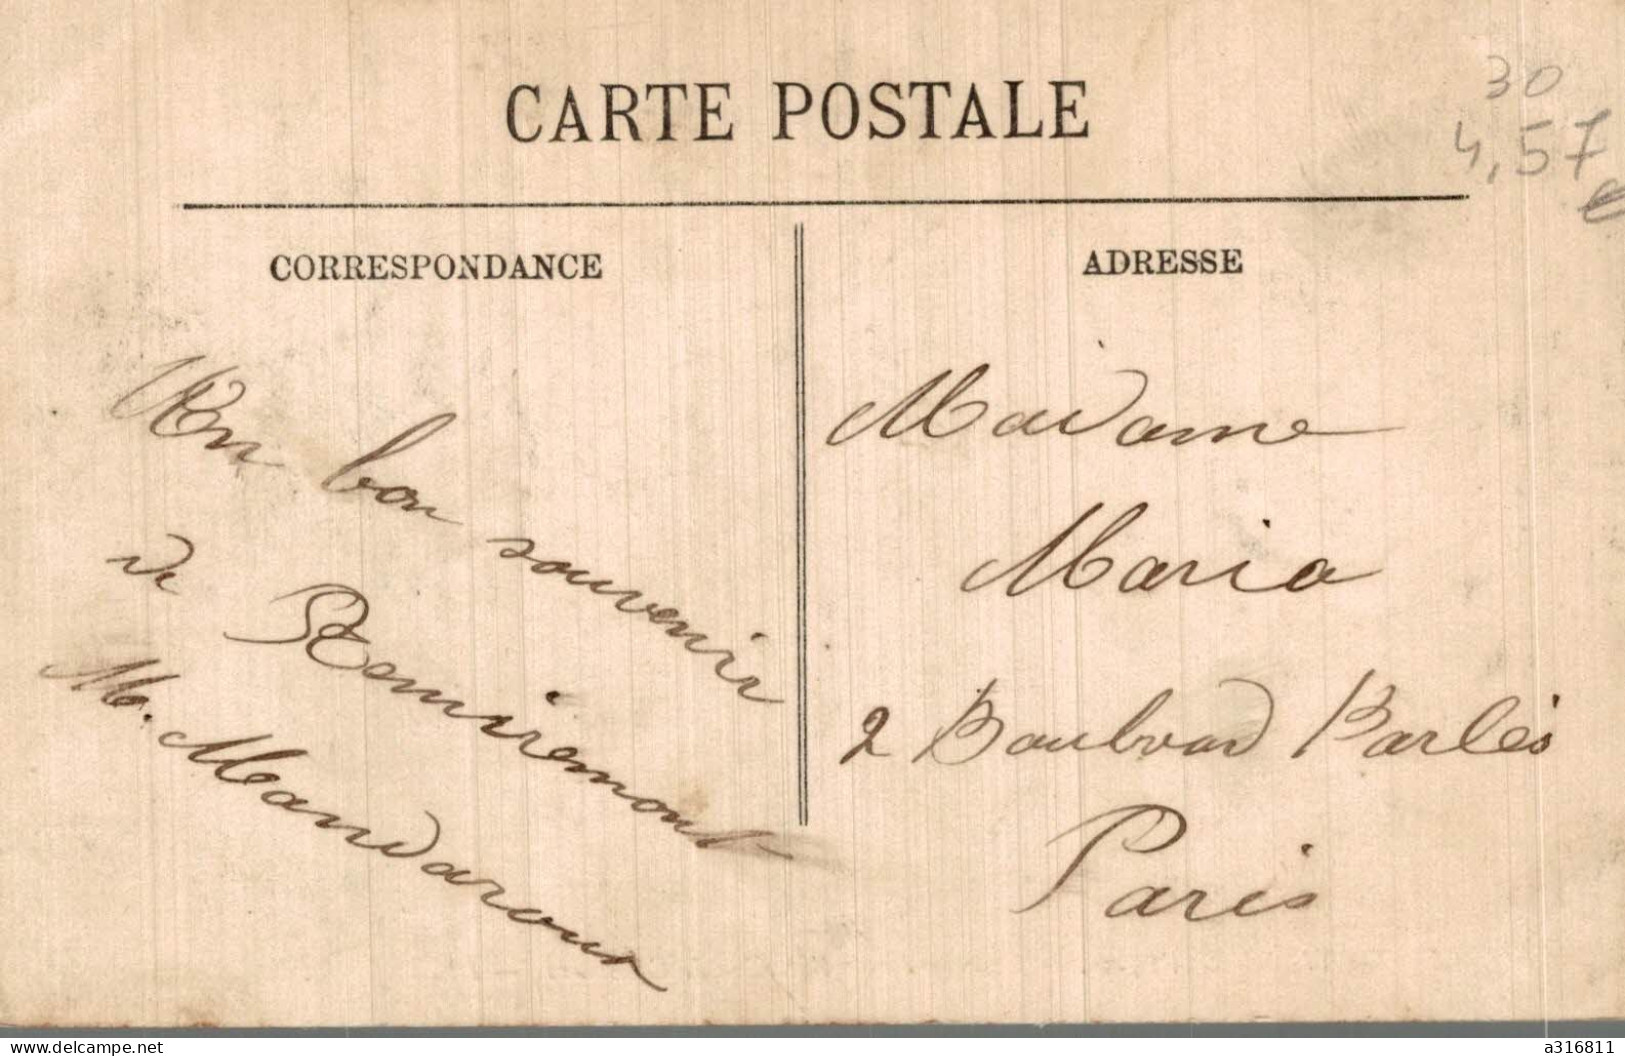 CARTE POSTALE
30
4,57 €
CORRESPONDANCE
Un bon souvenir
de Remiremont
M. Mandaroux
ADRESSE
Madame
Maria
2 Boulvard Barbès
Paris
www.delcampe.net
a316811